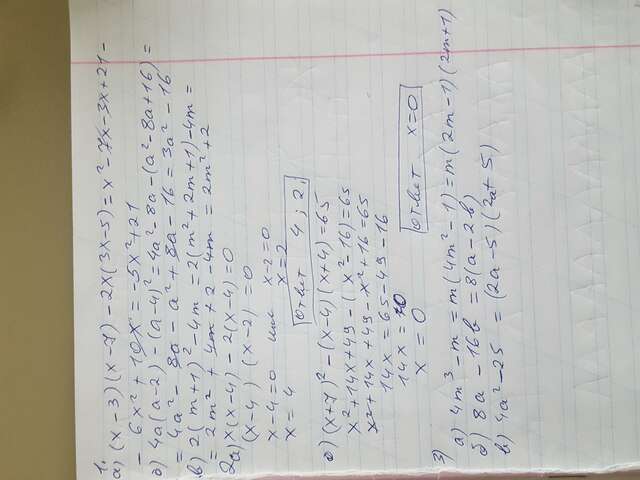 1.
а) (x-3)(x-7)-2x(3x-5)=x²-7x-3x+21-
-6x²+10x=-5x²+21
б) 4a(a-2)-(a-4)²=4a²-8a-(a²-8a+16)=
=4a²-8a-a²+8a-16=3a²-16
в) 2(m+1)²-4m=2(m²+2m+1)-4m=
=2m²+4m+2-4m=2m²+2
2а) x(x-4)-2(x-4)=0
(x-4)(x-2)=0
x-4=0 или x-2=0
x=4 x=2
Ответ 4; 2.
б) (x+7)²-(x-4)(x+4)=65
x²+14x+49-(x²-16)=65
x²+14x+49-x²+16=65
14x=65-49-16
14x=0
x=0
Ответ x=0
3)
а) 4m³-m=m(4m²-1)=m(2m-1)(2m+1)
б) 8a-16b=8(a-2b)
в) 4a²-25=(2a-5)(2a+5)